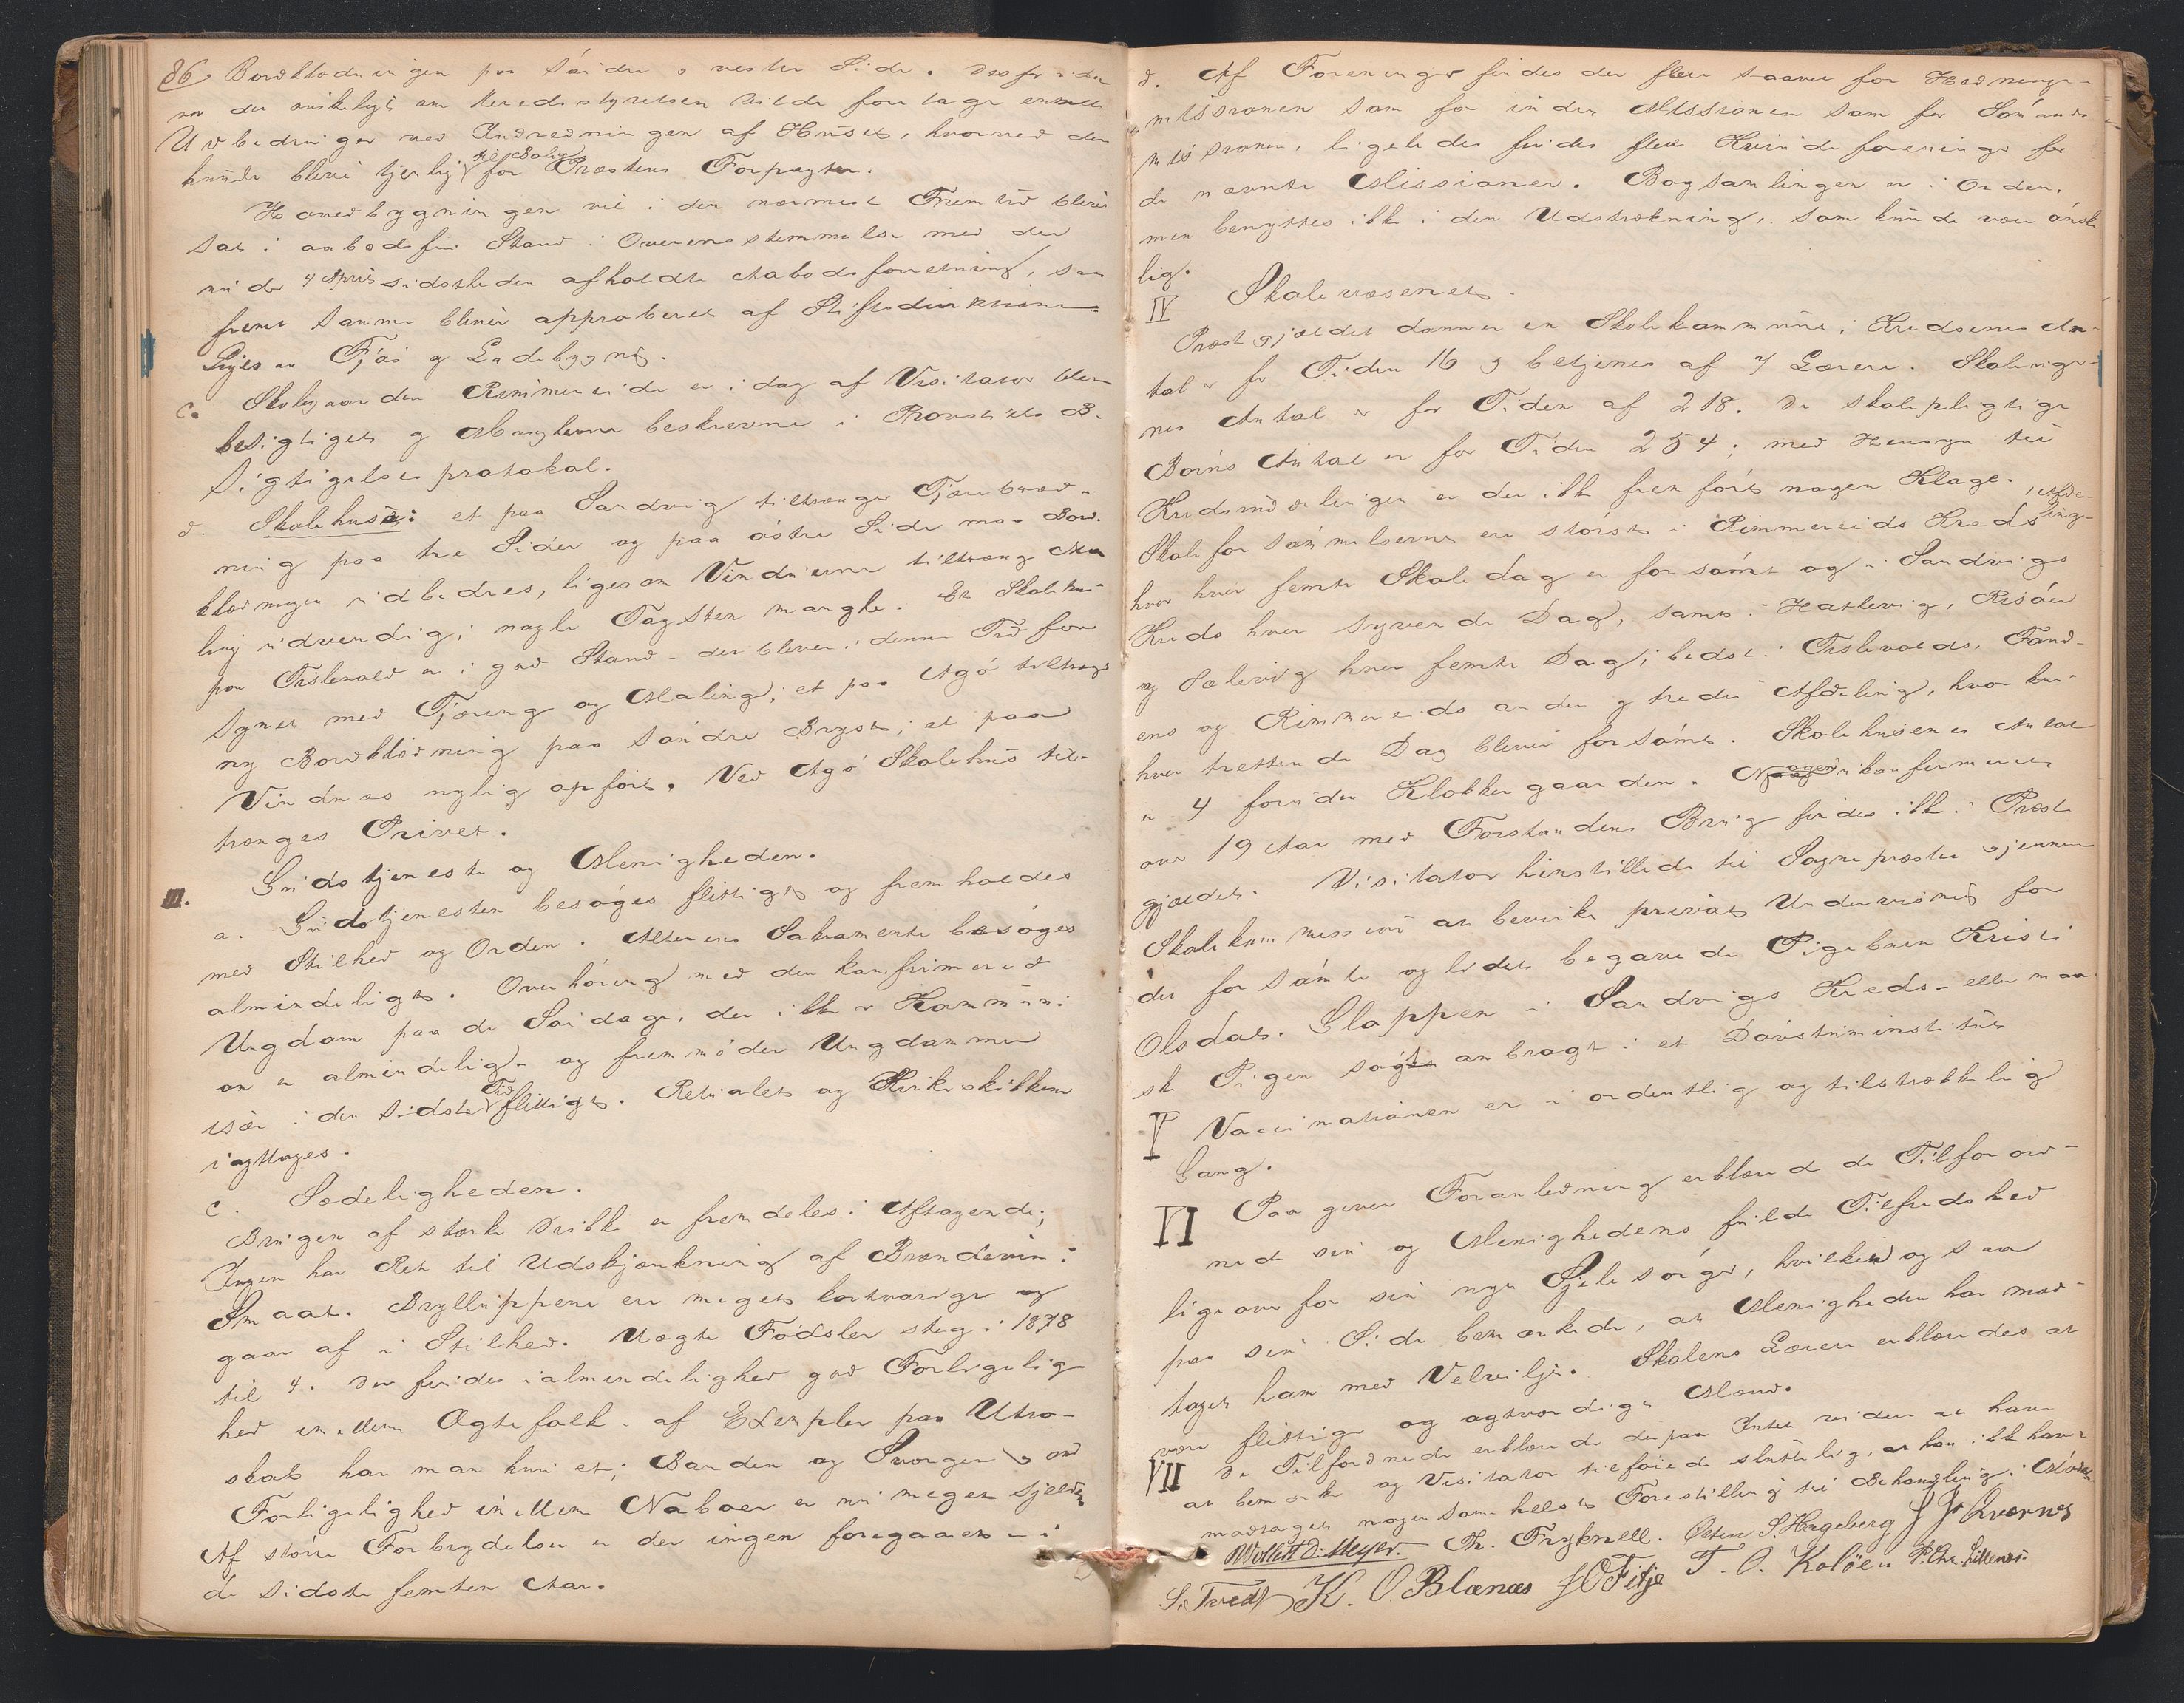 86. Bordklædningen paa søndre og vestre Side. Desforuden
var det ønskeligt om Herredsstyrelsen vilde foretage enkelte
Udbedringer ved Indredningen af Huset, hvorved det
kunde blive tjenlig til Bolig for Præstens Forpagter.
Hovedbygningen vil i den nærmeste Fremtid blive
sat i aabodsfri Stand i Overensstemmelse med den
nu den 4 April sidstleden afholdte Aabodsforretning, saa
fremt samme bliver approberet af Stiftsdirektionen
Ligesaa Fjøs og Ladebygning.
c. Skolegaarden Rimmereide er i dag af Visitator blevet
besigtiget og Manglerne beskrevne i Provstiets Be-
sigtigelsesprotokol.
d. Skolehuse: et paa Sandvig tiltrænger Tjærebred-
ning paa tre Sider og paa østre Side maa Bord-
klædningen udbedres, ligesom Vinduerne tiltræng Ma
ling udvendig; nogle Tagsten mangle. Et Skolehus
paa Tislevold er i god Stand - det bliver i denne Tid for-
synet med Tjæring og Maling; et paa Agø tiltrænger
ny Bordklædning paa søndre Bryst; et paa
Vindnæs nylig opført. Ved Agø Skolehus til-
trænges Privet.
III. Gudstjeneste og Menigheden.
a. Gudstjenesten besøges flittigt og fremholdes
med Stilhed og Orden. Alterens Sakramente besøges
almindeligt. Overhøring med den konfirmerede
Ungdom paa de Søndage, der ikke er Kommuni
on er almindelig - og fremmøder Ungdommen
især i den sidste Tid flittigt. Ritualet og Kirkeskikkene
iagttages.
c. Sædeligheden.
Brugen af stærk Drikke er fremdeles i Aftagende;
Ingen har Ret til Udskjænkning af Brændevin i
Smaat. Bryllupperne ere meget kortvarige og
gaar af i Stilhed. Uægte Fødsler steg i 1878
til 4. Der findes i almindelighed god Forligelig
hed imellem Ægtefolk. af Exempler paa Utro-
skab har man kun et; Banden og Sværgen og ond
Forligelighed imellem Naboer er nu meget sjelden
Af større Forbrydelser er der ingen foregaaet i
de sidste femten Aar.
d. Af Foreninger findes der flere saavel for Hedninge-
missionen som for indre Missionen som for Sømands
missionen, ligeledes findes flere Kvindeforeninger for
de nævnte Missioner. Bogsamlingen er i Orden,
men benyttes ikke i den Udstrækning, som kunde være ønske
lig.
IV Skolevæsenet.
Præstegjældet danner en Skolekommune; Kredsenes An-
tal er for Tiden 16 og betjenes af 7 Lærere. Skoleuger-
nes Antal er for Tiden af 218. De skolepligtige
Børns Antal er for Tiden 254; med Hensyn til
Kredsinddelingen er der ikke fremført nogen Klage.
Skoleforsømmelserne ere størst i Rimmereids Kreds 1 Afde-ling-
hvor hver femte Skoledag er forsømt og i Sandvigs
Kreds hver syvende Dag, samt i Hatlevig, Risøen
og Sælevig hver femte Dag; bedst i Tislevolds, Tand-
ens og Rimmereids anden og tredie Afdeling, hvor kun
hver trettende Dag blev forsømt. Skolehusenes Antal
er 4 foruden Klokkergaarden. Nogen ukonfirmeret
over 19 Aar med Forstandens Brug findes ikke i Præste
gjældet. Visitator henstillede til Sognepræsten gjennem
Skolekommissionen at bevirke privat Undervisning for
det forsømte og lidet begavede Pigebarn Kristi
Olsdat. Glappen i Sandvigs Kreds - eller maa
ske Pigen søgt anbragt i et Døvstuminstitut
V Vaccinationen er i ordentlig og tilstrækkelig
Gang.
VI Paa given Foranledning erklærede de Tilforord-
nede sin og Menighedens fulde Tilfredshed
ligeover for sin nye Sjelesørger, hvilken ogsaa
paa sin Side bemærkede, at Menigheden har mod-
taget ham med Velvilje. Skolens Lærere erklæredes at
være flittige og agtværdige Mænd.
VII De Tilforordnede erklærede derpaa Intet videre at have
at bemærke og Visitator tilføiede sluttelig, at han ikke havde
modtaget nogensomhelst Forestilling til Behandling i Mødet.
Wollert D. Meyer. Th. Fryknell. Østen S. Hageberg J J Kvernes
S. Tvedt K. O. Blanæs J O Fitje T. O. Koløen